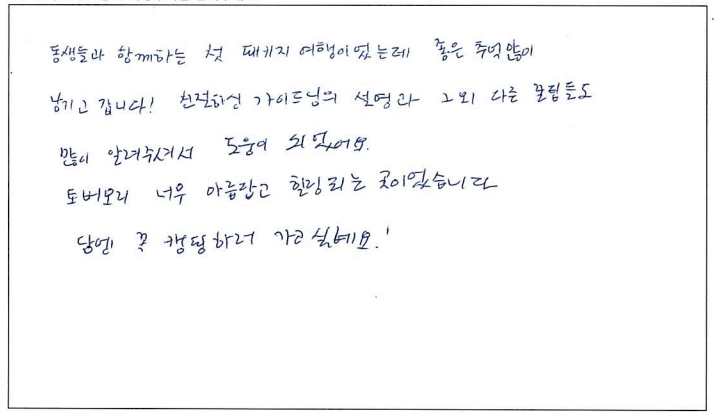 동생들과 함께하는 첫 패키지 여행이었는데 좋은 추억 많이
남기고 갑니다! 친절하신 가이드님의 설명과 그외 다른 꿀팁들도
많이 알려주셔서 도움이 되었어요.
토버모리 너무 아름답고 힐링되는 곳이었습니다
담엔 꼭 캠핑하러 가고싶네요!